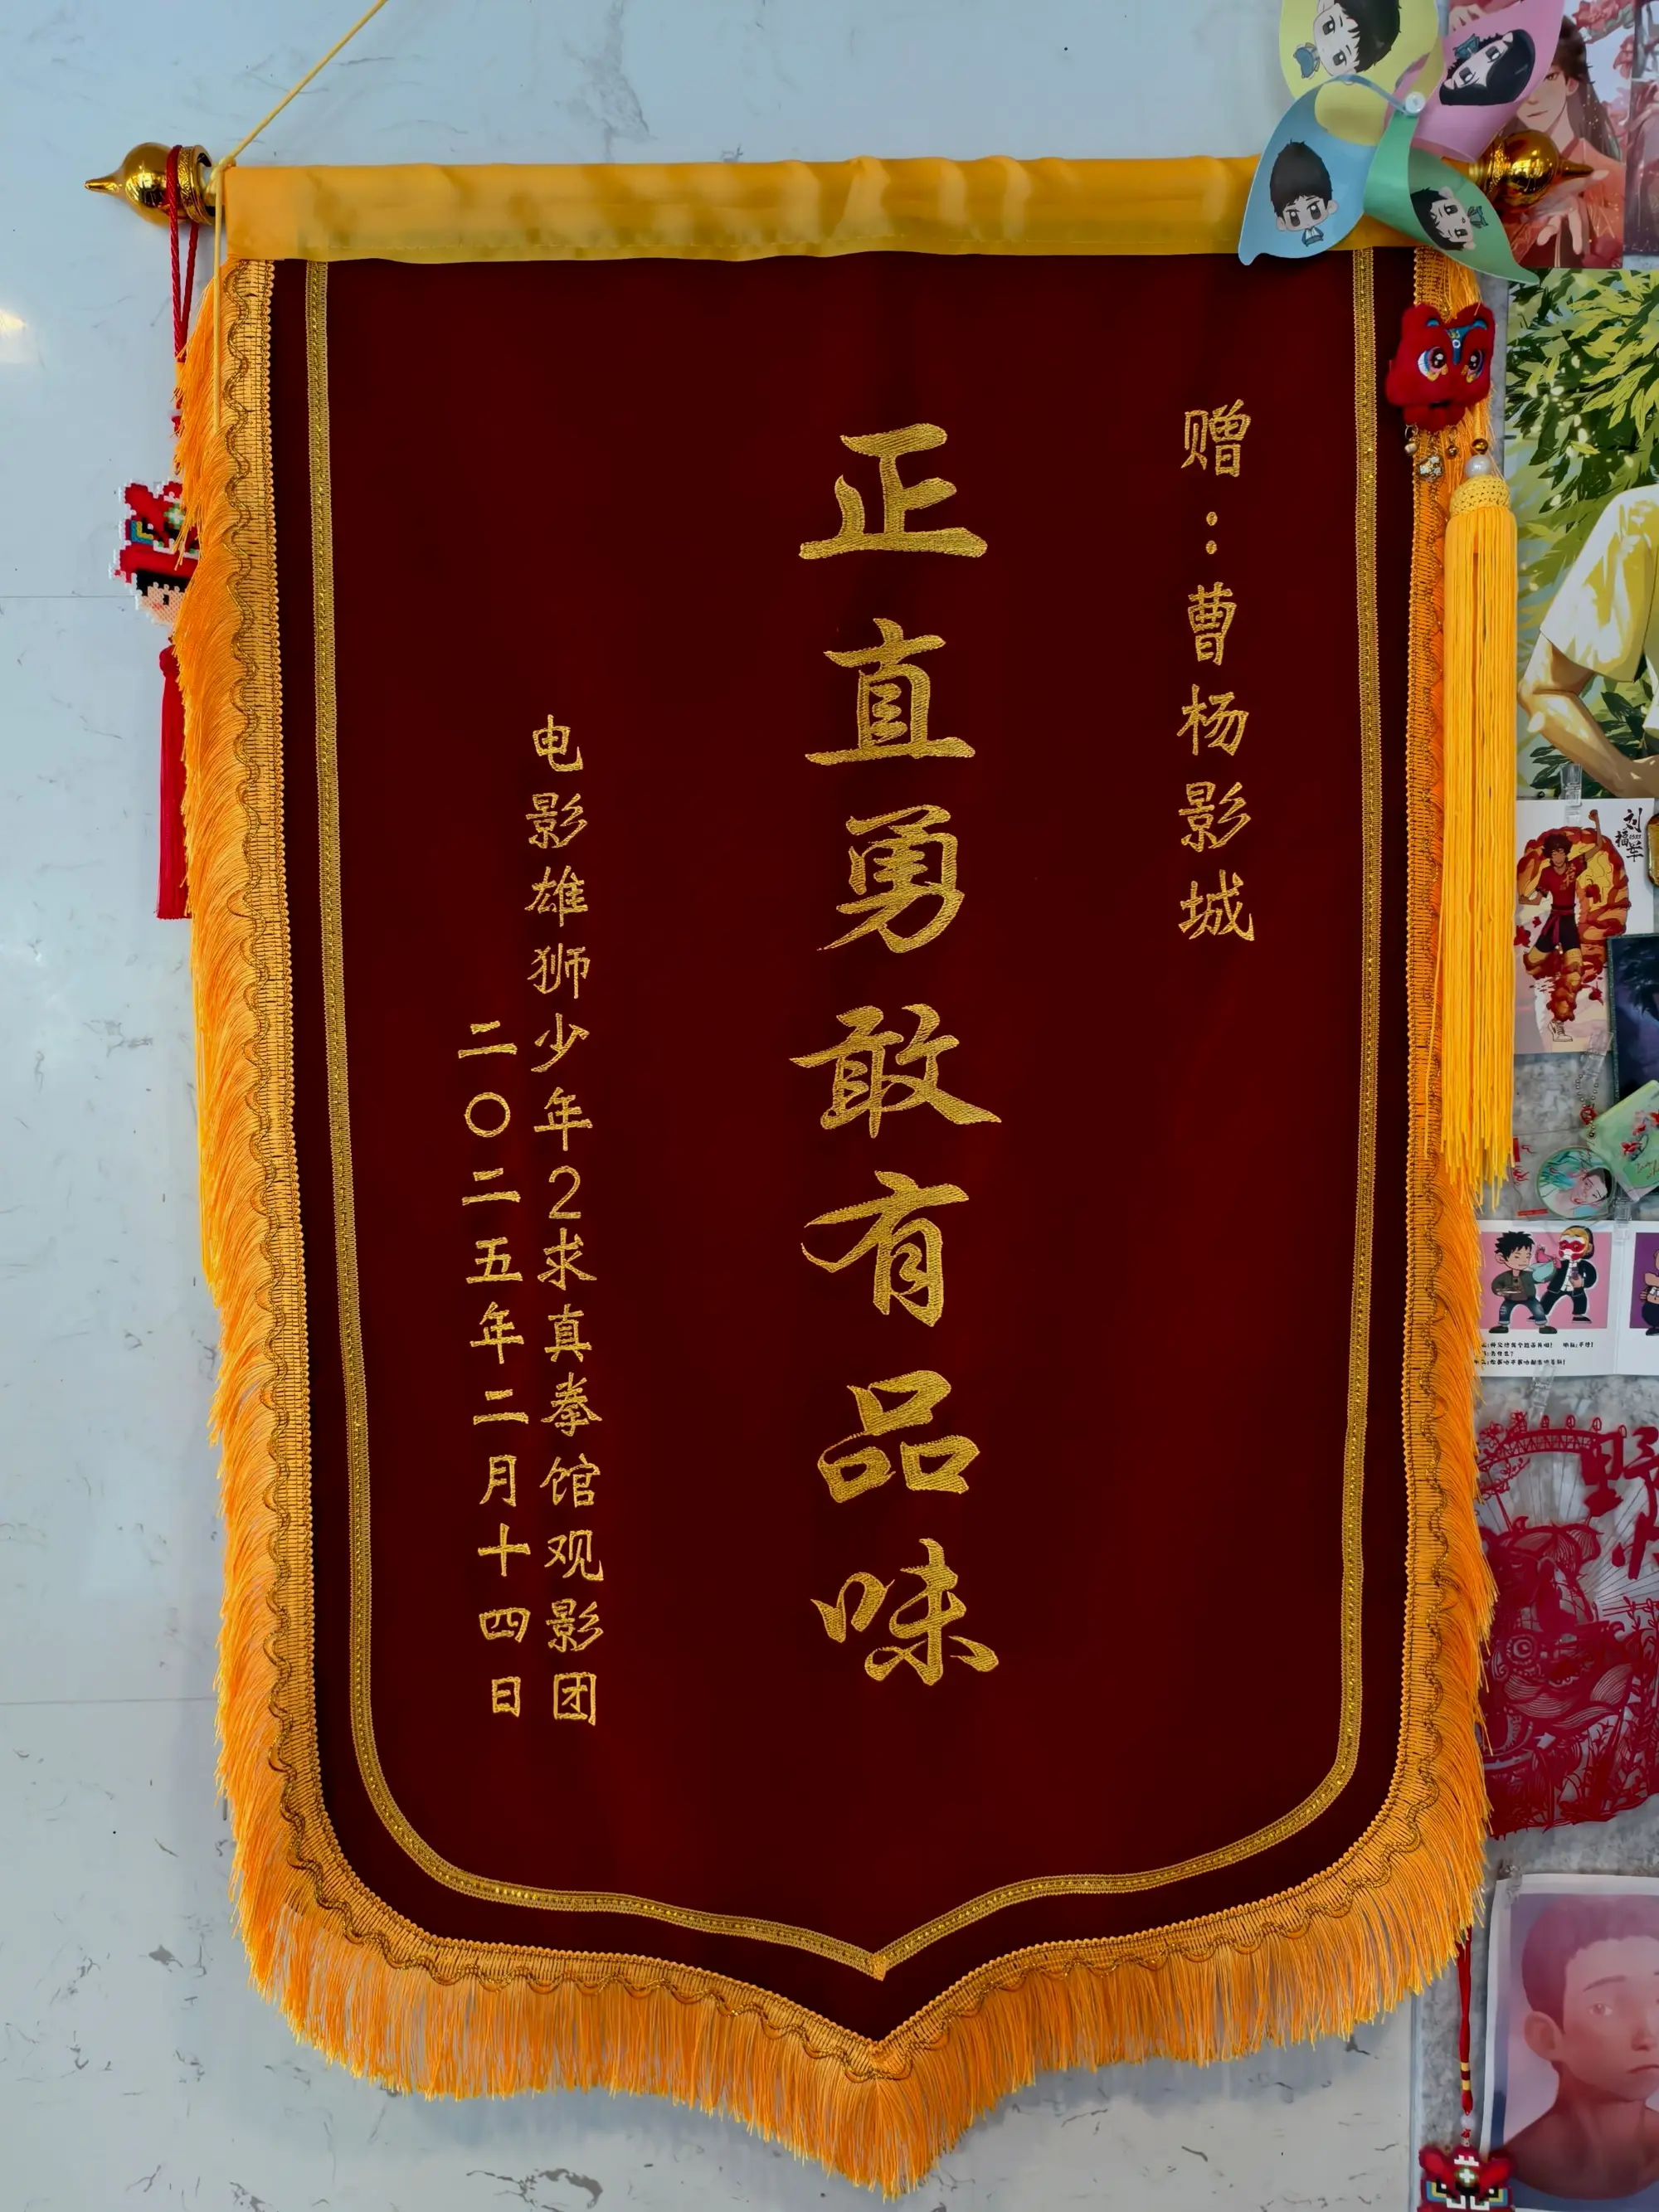 赠：曹杨影城
正直勇敢有品味
电影雄狮少年2求真拳馆观影团
二〇二五年二月十四日
刘